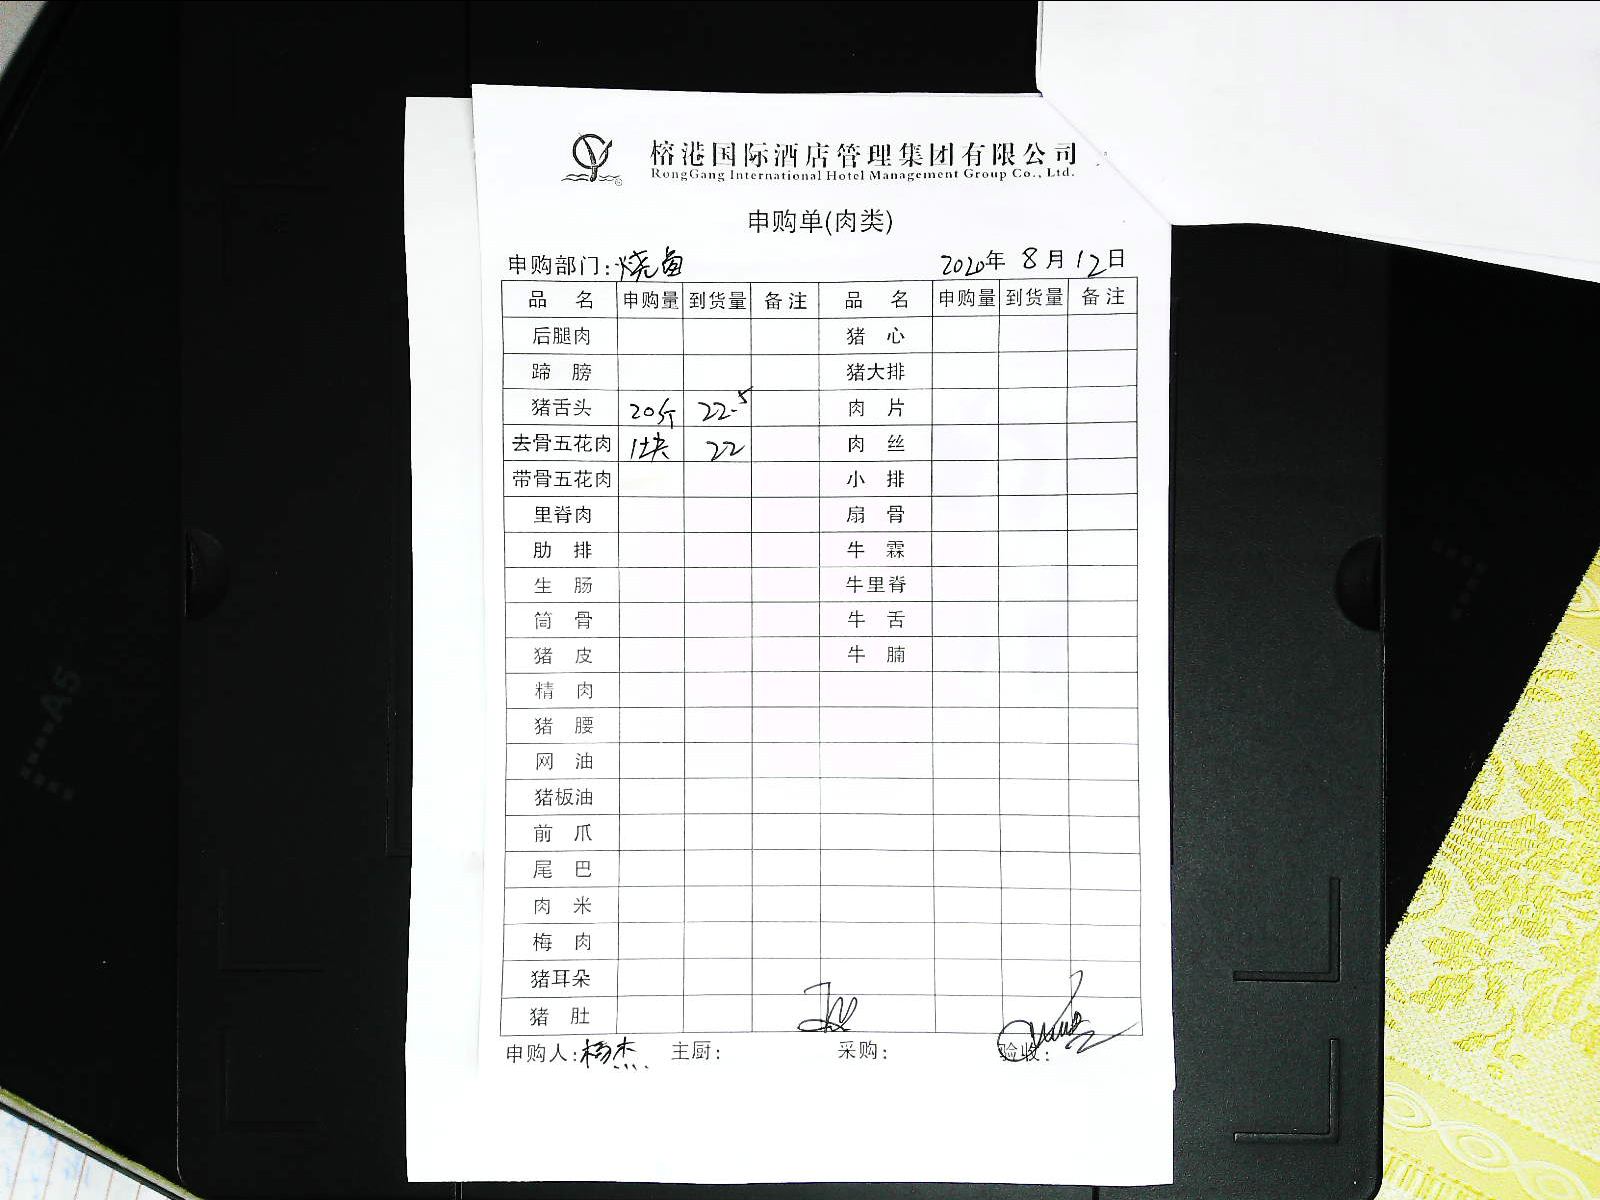 榕港国际酒店管理集团有限公司
RongGang International Hotel Management Group Co., Ltd.
申购单(肉类)
申购部门:烧卤 2020年 8月12日
品 名 申购量 到货量 备注 品 名 申购量 到货量 备注
后腿肉 猪 心
蹄 膀 猪大排
猪舌头 20斤 22.5 肉 片
去骨五花肉 1块 22 肉 丝
带骨五花肉 小 排
里脊肉 扇 骨
肋 排 牛 霖
生 肠 牛里脊
筒 骨 牛 舌
猪 皮 牛 腩
精 肉
猪 腰
网 油
猪板油
前 爪
尾 巴
肉 米
梅 肉
猪耳朵
猪 肚
申购人:杨杰 主厨: 采购: 验收:
A5